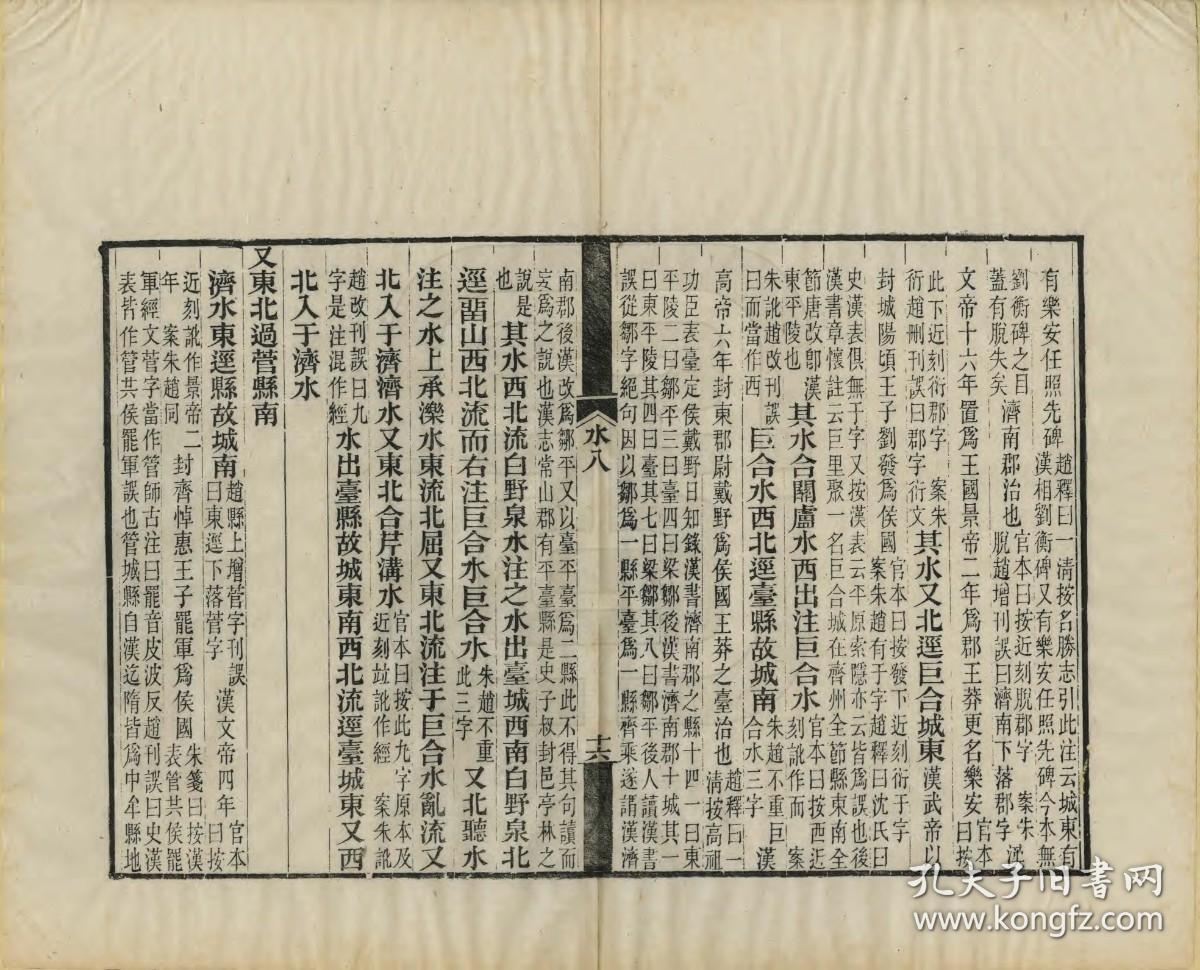 有樂安任照先碑趙釋曰一清按名勝志引此注云城東有
劉衡碑之目漢相劉衡碑又有樂安任照先碑今本無
蓋有脫失矣濟南郡治也官本曰按近刻脫郡字案朱脫趙增刊誤曰濟南下落郡字漢
文帝十六年置爲王國景帝二年爲郡王莽更名樂安官本曰按
此下近刻衍郡字案朱衍趙刪刊誤曰郡字衍文其水又北逕巨合城東漢武帝以
封城陽頃王子劉發爲侯國官本曰按發下近刻衍于字案朱趙有于字趙釋曰沈氏曰
史漢表俱無于字又按漢表云平原索隱亦云皆爲誤也後
漢書章懷註云巨里聚一名巨合城在齊州全節縣東南全
節唐改卽漢東平陵也其水合關盧水西出注巨合水官本曰按西近刻訛作而案
朱訛趙改刊誤曰而當作西巨合水西北逕臺縣故城南朱趙不重巨合水三字漢
高帝六年封東郡尉戴野爲侯國王莽之臺治也趙釋曰一清按高祖
功臣表臺定侯戴野日知錄漢書濟南郡之縣十四一曰東
平陵二曰鄒平三曰臺四曰梁鄒後漢書濟南郡十城其一
曰東平陵其四曰臺其七曰梁鄒其八曰鄒平後人讀漢書
誤從鄒字絕句因以鄒爲一縣平臺爲一縣齊乘遂謂漢濟
水八
十六
南郡後漢改爲鄒平又以臺平臺爲二縣此不得其句讀而
妄爲之說也漢志常山郡有平臺縣是史子叔封邑亭林之
說是也其水西北流白野泉水注之水出臺城西南白野泉北
逕畱山西北流而右注巨合水巨合水朱趙不重此三字又北聽水
注之水上承濼水東流北屈又東北流注于巨合水亂流又
北入于濟濟水又東北合芹溝水官本曰按此九字原本及近刻竝訛作經案朱訛
趙改刊誤曰九字是注混作經水出臺縣故城東南西北流逕臺城東又西
北入于濟水
又東北過菅縣南
濟水東逕縣故城南趙縣上增菅字刊誤曰東逕下落菅字漢文帝四年官本曰按
近刻訛作景帝二年案朱趙同封齊悼惠王子罷軍爲侯國朱箋曰按漢表管共侯罷
軍經文菅字當作管師古注曰罷音皮波反趙刊誤曰史漢
表皆作管共侯罷軍誤也管城縣自漢迄隋皆爲中牟縣地
孔夫子旧书网
www.kongfz.com